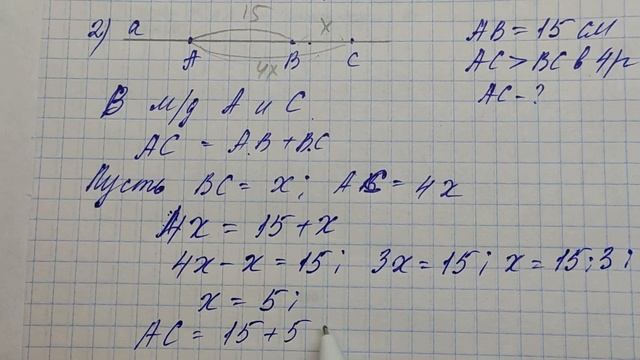 2) a 15 x
A B C
4x
AB = 15 см
AC > BC в 4р
AC - ?
В м/д А и С.
AC = AB + BC
Пусть BC = x; AC = 4x
4x = 15 + x
4x - x = 15; 3x = 15; x = 15:3;
x = 5;
AC = 15 + 5